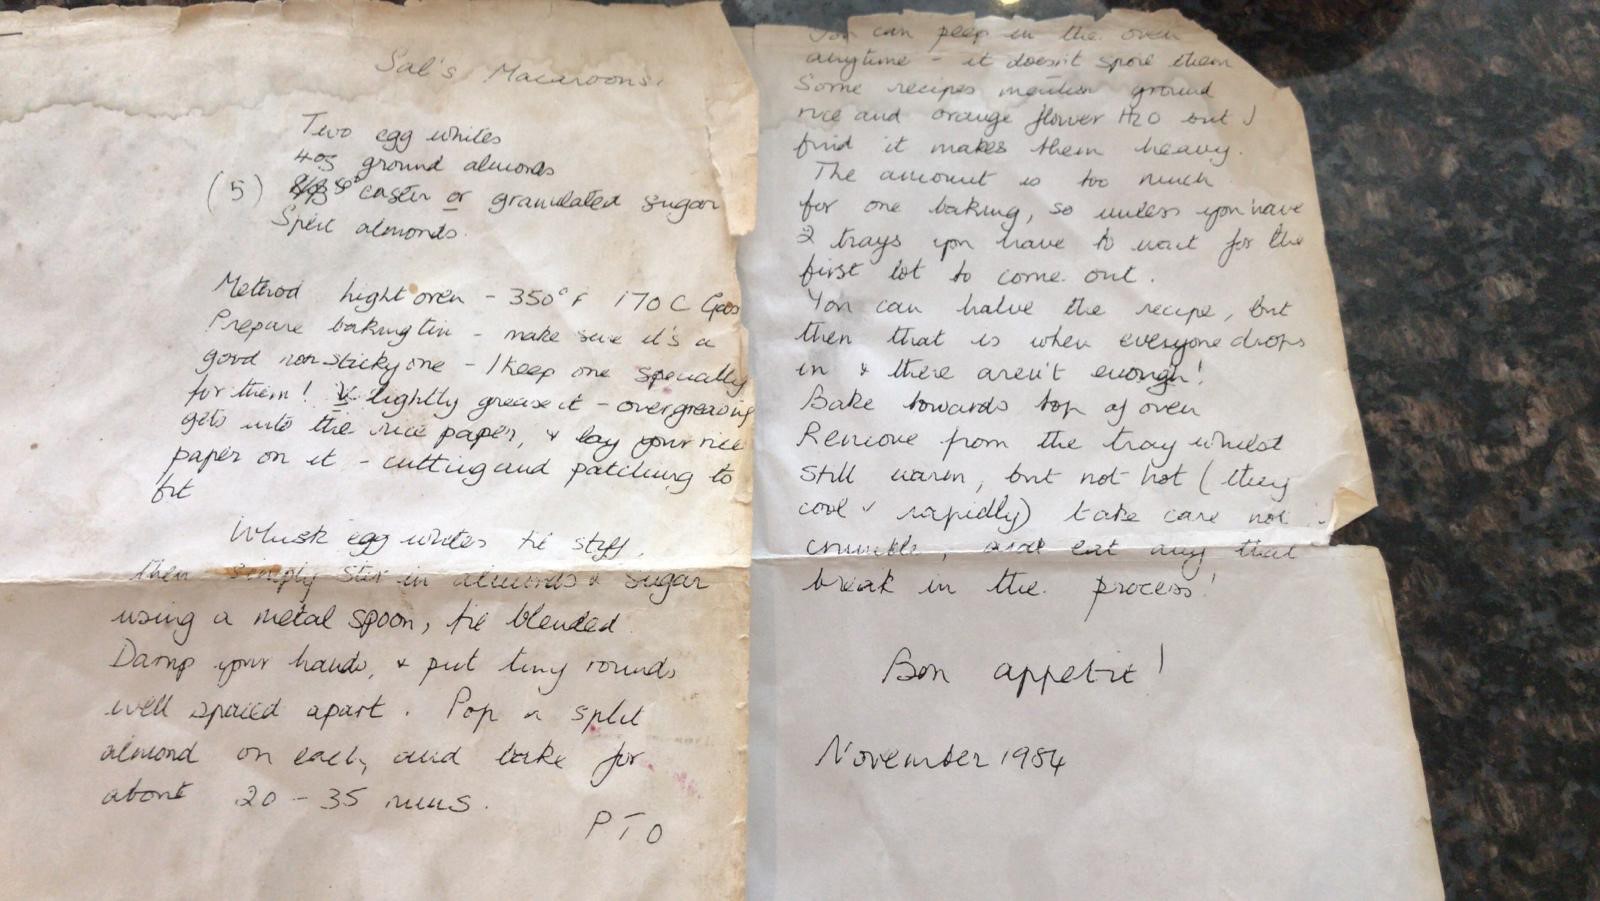 Sal's Macaroons.
Two egg whites
4oz ground almonds
(5) caster or granulated sugar
Split almonds.
Method light oven - 350°F 170C Gas
Prepare baking tin - make sure it's a
good non sticky one - I keep one specially
for them! & lightly grease it - overgreasing
gets into the rice paper, & lay your rice
paper on it - cutting and patching to
fit
Whisk egg whites til stiff,
then simply stir in almonds & sugar
using a metal spoon, til blended.
Damp your hands, & put tiny rounds
well spaced apart. Pop a split
almond on each, and bake for
about 20 - 35 mins.
PTO
You can peep in the oven
anytime - it doesn't spoil them
Some recipes mention ground
rice and orange flower H2O but I
find it makes them heavy.
The amount is too much
for one baking, so unless you have
2 trays you have to wait for the
first lot to come out.
You can halve the recipe, but
then that is when everyone drops
in & there aren't enough!
Bake towards top of oven
Remove from the tray whilst
still warm, but not hot (they
cool v rapidly) take care not
crumble, and eat any that
break in the process!
Bon appetit!
November 1984